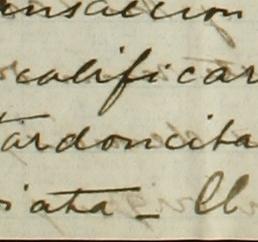 ansaccion
calificar
tardoncita
iata_ Ll